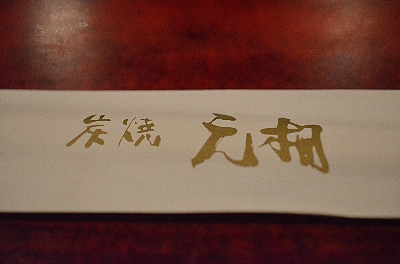 炭焼 元相